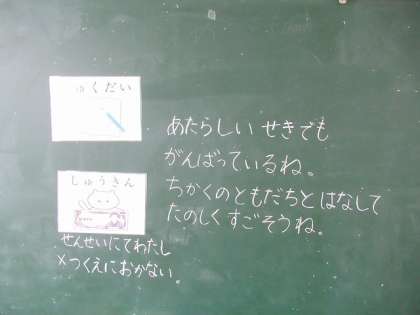 くだい
しゅうきん
せんせいにてわたし
×つくえにおかない。
あたらしい せきでも
がんばっているね。
ちかくのともだちとはなして
たのしくすごそうね。